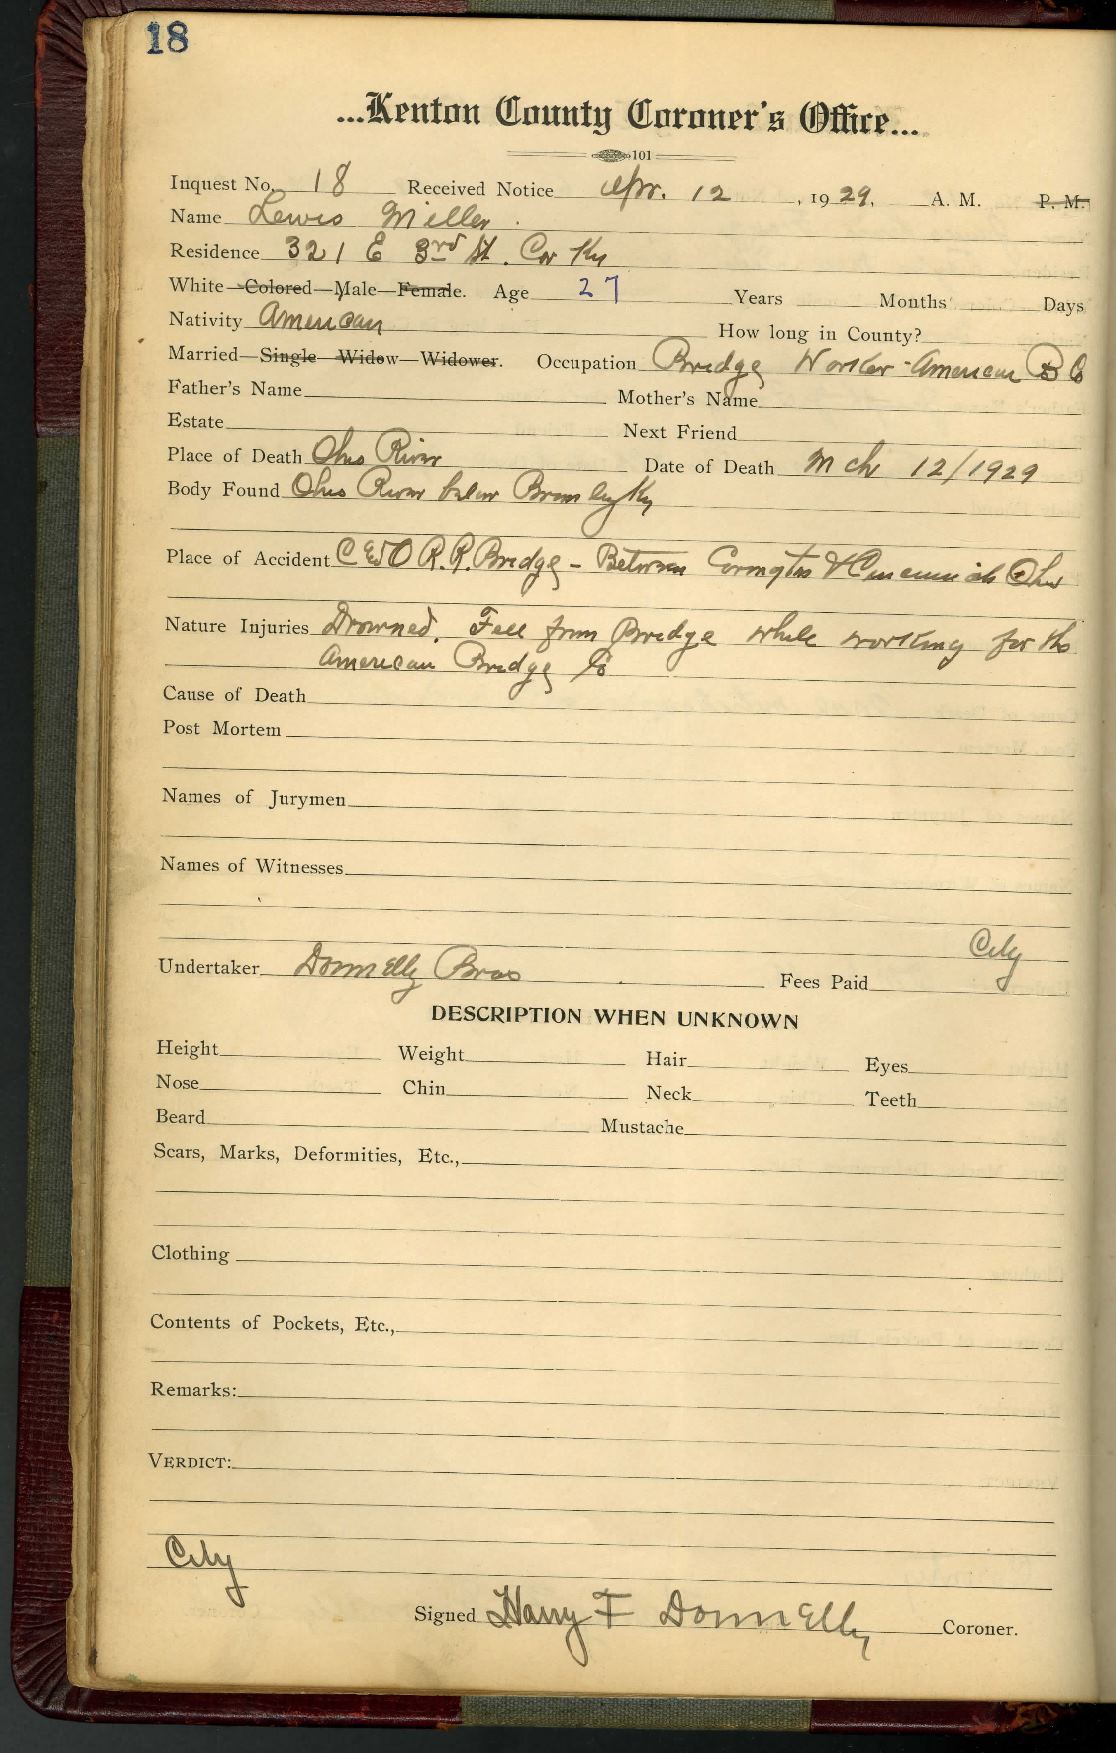 18
...Kenton County Coroner's Office...
101
Inquest No. 18 Received Notice Apr. 12, 1929, A. M. P. M.
Name Lewis Miller
Residence 321 E 3rd St. Cov Ky
White—Colored—Male—Female. Age 27 Years Months Days
Nativity American How long in County?
Married—Single—Widow—Widower. Occupation Bridge Worker - American B Co
Father's Name Mother's Name
Estate Next Friend
Place of Death Ohio River Date of Death Mch 12/1929
Body Found Ohio River below Bromley Ky
Place of Accident C & O R.R. Bridge - Between Covington & Cincinnati Ohio
Nature Injuries Drowned. Fell from Bridge while working for the
American Bridge Co
Cause of Death
Post Mortem
Names of Jurymen
Names of Witnesses
City
Undertaker Donnelly Bros Fees Paid
DESCRIPTION WHEN UNKNOWN
Height Weight Hair Eyes
Nose Chin Neck Teeth
Beard Mustache
Scars, Marks, Deformities, Etc.,
Clothing
Contents of Pockets, Etc.,
Remarks:
VERDICT:
City
Signed Harry F Donnelly Coroner.